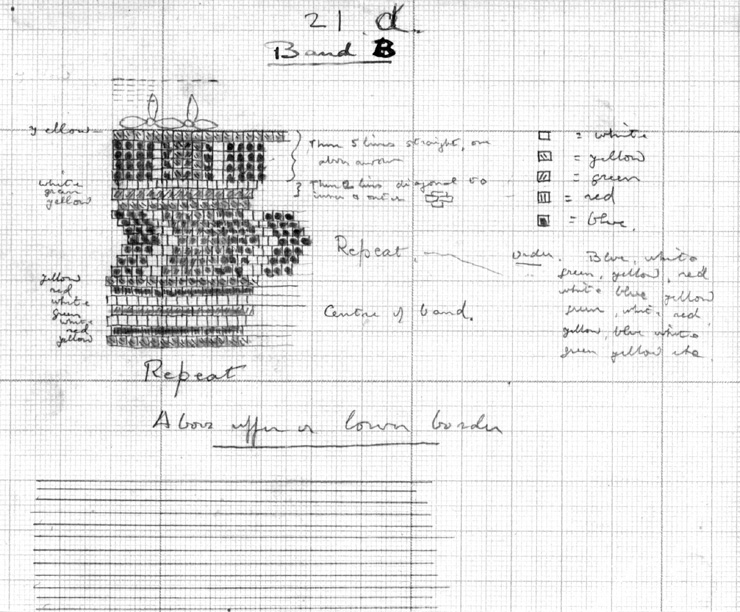 21 d.
Band B
yellow
Then 5 lines straight, one
above another
Then 2 lines diagonal to
white
green
yellow
= white
= yellow
= green
= red
= blue.
Repeat.
Centre of band.
yellow
red
white
green
white
red
yellow
Order. Blue, white
green, yellow, red
white blue yellow
green, white red
yellow, blue white
green yellow etc.
Repeat
Above upper or lower border